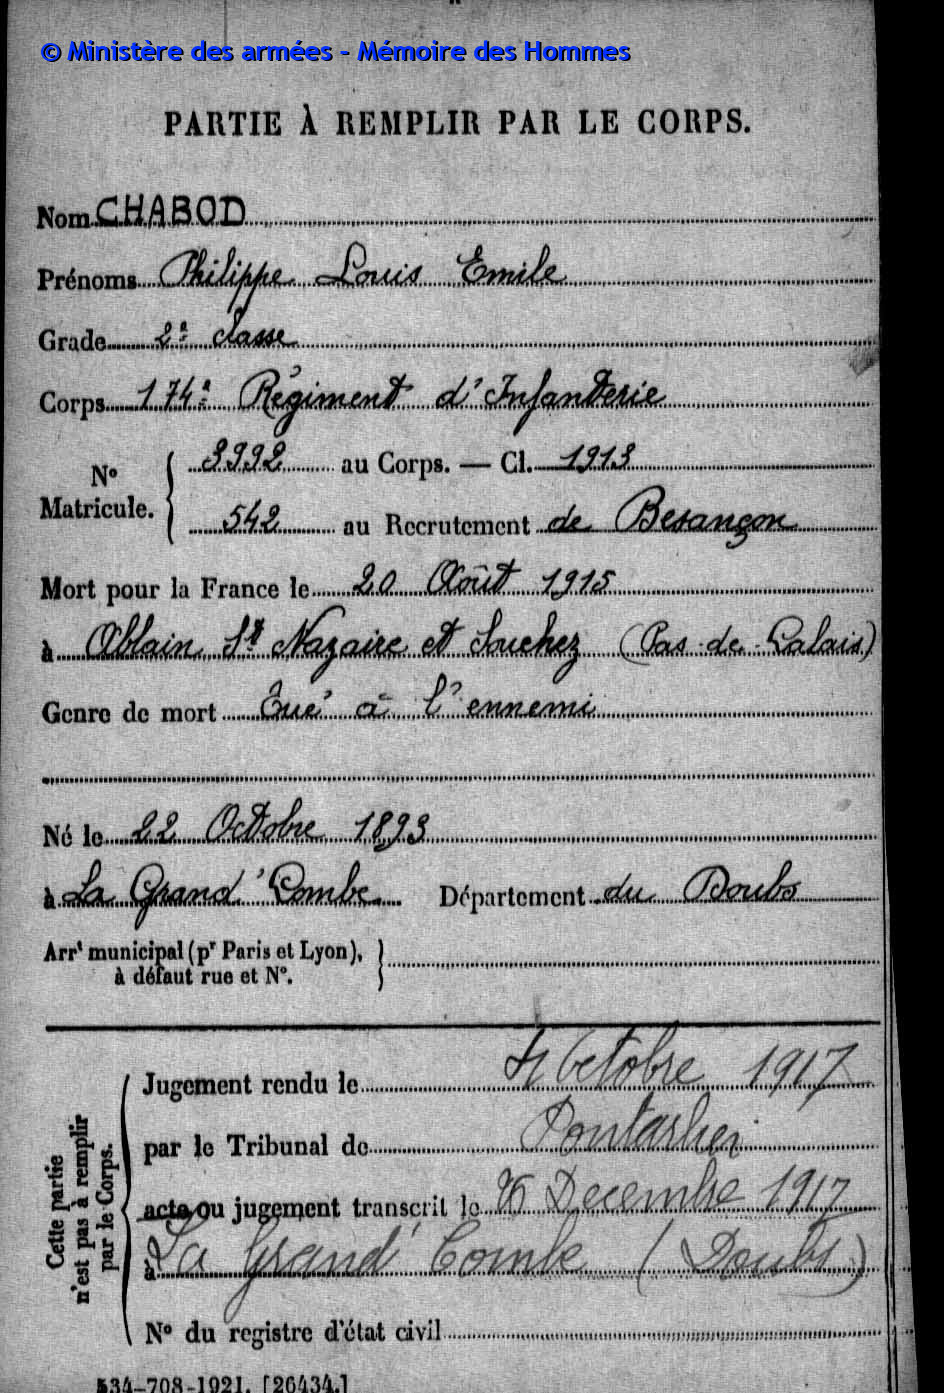 © Ministère des armées - Mémoire des Hommes
PARTIE À REMPLIR PAR LE CORPS.
Nom CHABOD
Prénoms Philippe Louis Emile
Grade 2e classe
Corps 174e Régiment d'Infanterie
No Matricule. { 3992 au Corps. — Cl. 1913
542 au Recrutement de Besançon
Mort pour la France le 20 Août 1915
à Ablain St Nazaire et Souchez (Pas-de-Calais)
Genre de mort Tué à l'ennemi
Né le 22 Octobre 1893
à La Grand'Combe Département du Doubs
Arrt municipal (pr Paris et Lyon), }
à défaut rue et No.
Cette partie
n'est pas à remplir
par le Corps.
Jugement rendu le 4 Octobre 1917
par le Tribunal de Pontarlier
acte ou jugement transcrit le Decembre 1917
à La Grand'Combe (Doubs)
No du registre d'état civil
534-708-1921. [26434.]